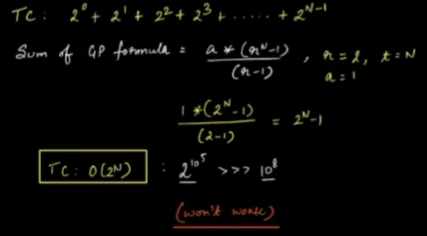 TC: 2⁰ + 2¹ + 2² + 2³ + ...... + 2ᴺ⁻¹
Sum of GP formula = a * (rᴺ-1) / (r-1) , r = 2, t = N
a = 1
1 * (2ᴺ-1) / (2-1) = 2ᴺ-1
TC: O(2ᴺ) : 2^10^5 >>> 10⁸
(won't work)